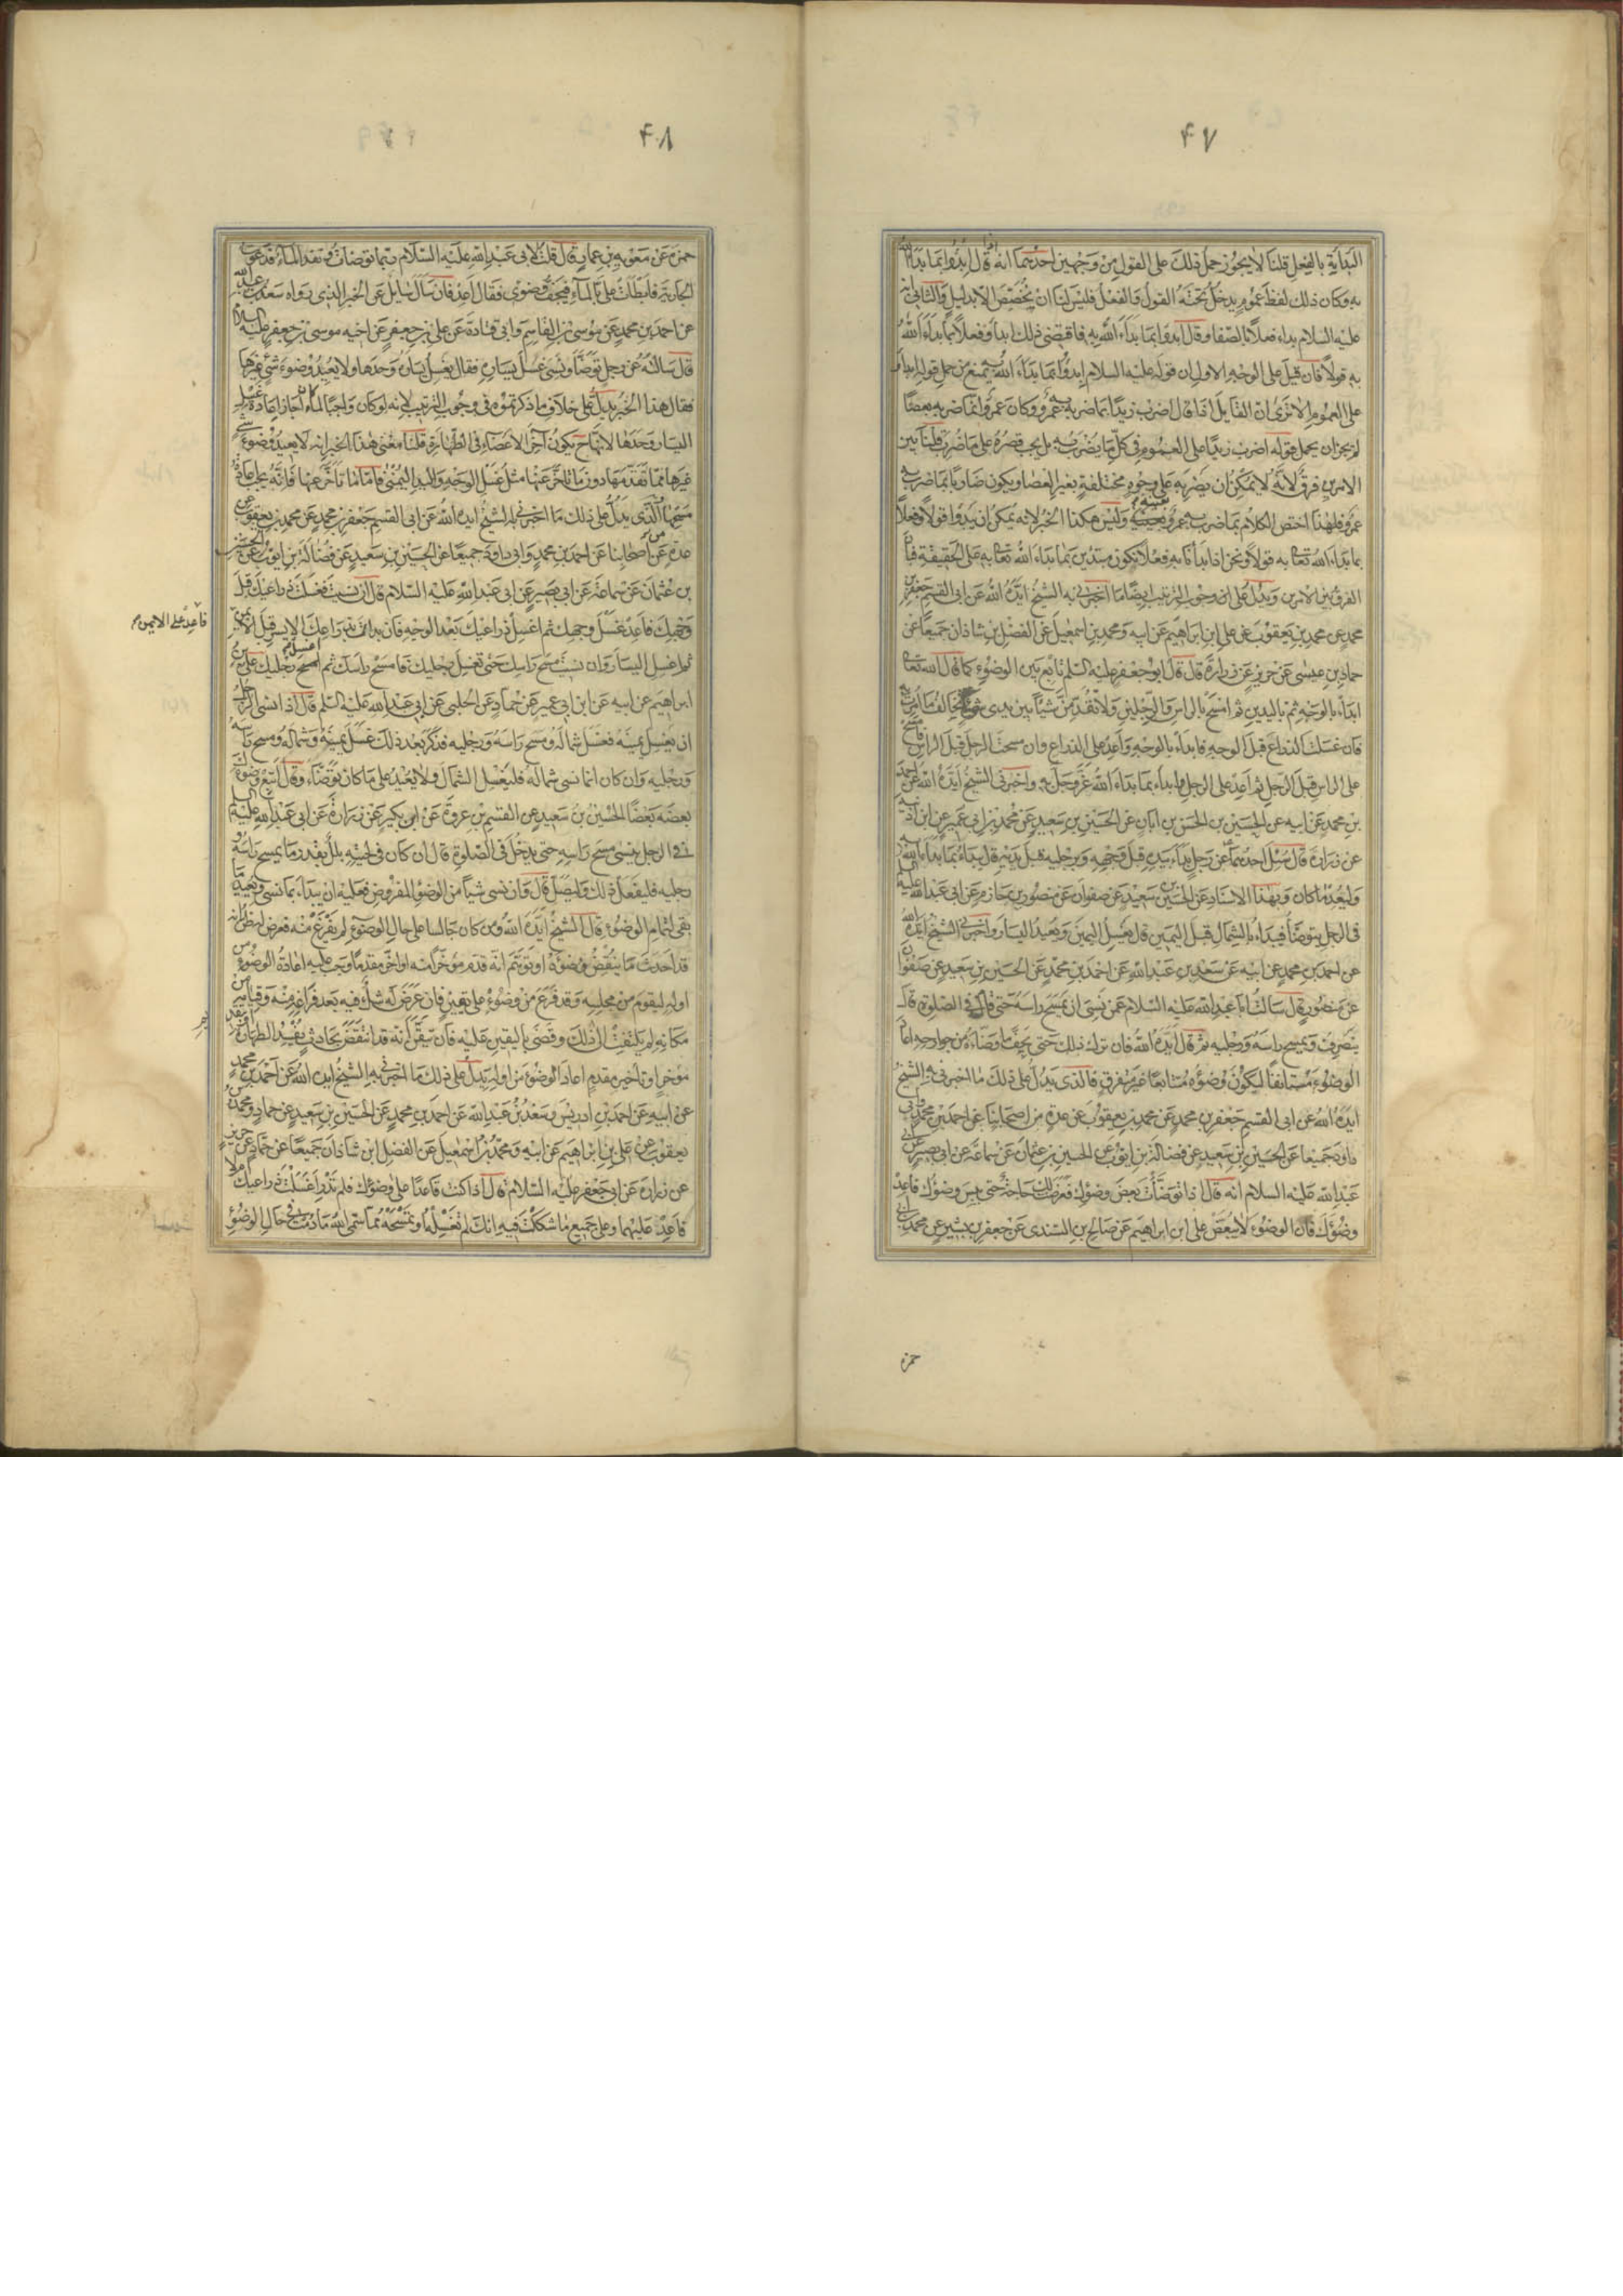 ۴۷
البداية بالفعل قلنا لا يجوز حمل ذلك على القول من وجهين احدهما انه قال ابدؤا بما بدأ الله
به وكان ذلك لفظ عموم يدخل تحته القول والفعل فليس لنا ان نخصص الا بدليل والثاني انه
عليه السلام بداء فعلا بالصفا وقال ابدؤا بما بداء الله به فاقتضى ذلك ابدأوا فعلا بما بداء الله
به قولا فان قيل على الوجه الاول ان قوله عليه السلام ابدؤا بما بداء الله به يمنع من حمل قوله ابدأوا
على العموم الا ترى ان القايل اذا قال اضرب زيدا بما ضرب به عمرو وكان عمرو انما ضربه بعصا
لم يجز ان يحمل قوله اضرب زيدا على العموم في كل ما يضرب به بل يجب قصره على ما ضرب قلنا بين
الامرين فرق لانه لا يمكن ان يضربه على وجوه مختلفة بغير العصا ويكون ضاربا بما ضرب به
عمرو فلهذا اختص الكلام بما ضرب به عمرو بعينه وليس هكذا الخبر لانه يمكن ان يبدؤا قولا وفعلا
بما بداء الله تعالى به قولا ونحن اذا بدأنا به فعلا نكون مبتدئين بما بداء الله تعالى به على الحقيقة فبان
الفرق بين الامرين ويدل على ان وجوب الترتيب ايضا ما اخبرني به الشيخ ايده الله عن ابى القسم جعفر بن
محمد عن محمد بن يعقوب عن علي ابن ابراهيم عن ابيه ومحمد بن اسمعيل عن الفضل بن شاذان جميعا عن
حماد بن عيسى عن حريز عن زرارة قال قال ابو جعفر عليه السلم تابع بين الوضوء كما قال الله تعالى
ابداء بالوجه ثم باليدين ثم امسح بالراس والرجلين ولا تقدمن شيئا بين يدى شئ تخالف ما امرت به
فان غسلت الذراع قبل الوجه فابداء بالوجه واعد على الذراع وان مسحت الرجل قبل الراس فامسح
على الراس قبل الرجل ثم اعد على الرجل ابداء بما بداء الله عز وجل به واخبرني الشيخ ايده الله عن احمد
بن محمد عن ابيه عن الحسين بن الحسن بن ابان عن الحسين بن سعيد عن محمد بن ابى عمير عن ابن اذينه
عن زرارة قال سئل احدهما عن رجل بداء بيده قبل وجهه وبرجليه قبل يديه قال يبداء بما بداء الله به
وليعد ما كان وبهذا الاسناد عن الحسين بن سعيد عن صفوان عن منصور بن حازم عن ابى عبد الله عليه السلم
فى الرجل يتوضأ فيبداء بالشمال قبل اليمين قال يغسل اليمين ويعيد اليسار واخبرني الشيخ ايده الله
عن احمد بن محمد عن ابيه عن سعد بن عبد الله عن احمد بن محمد عن الحسين بن سعيد عن صفوان
عن منصور قال سالت ابا عبد الله عليه السلام عمن نسى ان يمسح راسه حتى قام في الصلوة قال
ينصرف ويمسح راسه ورجليه ثم قال ايده الله فان ترك ذلك حتى يجف ما وضاه من جوارحه اعاد
الوضوء مستانفا ليكون وضوؤه متتابعا غير متفرق فالذى يدل على ذلك ما اخبرني به الشيخ
ايده الله عن ابى القسم جعفر بن محمد عن محمد بن يعقوب عن عدة من اصحابنا عن احمد بن محمد وابى
داود جميعا عن الحسين بن سعيد عن فضالة بن ايوب عن الحسين بن عثمان عن سماعة عن ابى بصير عن ابى
عبد الله عليه السلام انه قال اذا توضأت بعض وضوئك فعرضت لك حاجة حتى يبس وضوئك فاعد
وضوئك فان الوضوء لا يبعض على ابن ابراهيم عن صالح بن السندى عن جعفر بن بشير عن محمد بن ابى
حمزه
۴۸
حمزه عن معويه بن عمار قال قلت لابى عبد الله عليه السلام ربما توضات ونفد الماء فدعوت
الجارية فابطات على بالماء فيجف وضوئى فقال اعد فان سال سايل عن الخبر الذى رواه سعد بن عبد الله
عن احمد بن محمد عن موسى بن القاسم وابى قتادة عن على بن جعفر عن اخيه موسى بن جعفر عليه السلام
قال سالته عن رجل توضأ ونسى غسل يساره فقال يغسل يساره وحدها ولا يعيد وضوء شئ غيرها
فقال هذا الخبر يدل على خلاف ما ذكرتموه فى وجوب الترتيب لانه لو كان واجبا لما جاز اعادة غسل
اليسار وحدها لانها يكون آخر الاعضاء فى الطهارة قلنا معنى هذا الخبر انه لا يعيد وضوء شئ
غيرها مما تقدمها دون ما تاخر عنها مثل غسل الوجه واليد اليمنى فاما ما تاخر عنها فانه يجب اعادة
مسحها والذى يدل على ذلك ما اخبرني به الشيخ ايده الله عن ابى القسم جعفر بن محمد عن محمد بن يعقوب عن
عدة من اصحابنا عن احمد بن محمد وابى داود جميعا عن الحسين بن سعيد عن فضالة بن ايوب عن الحسين
بن عثمان عن سماعة عن ابى بصير عن ابى عبد الله عليه السلام قال ان نسيت فغسلت ذراعيك قبل
وجهك فاعد غسل وجهك ثم اغسل ذراعيك بعد الوجه فان بدات بذراعك الايسر قبل الايمن
فاعد على الايمن
ثم اغسل اليسار وان نسيت مسح راسك حتى تغسل رجليك فامسح راسك ثم اغسل رجليك على بن
ابراهيم عن ابيه عن ابن ابى عمير عن حماد عن الحلبى عن ابى عبد الله عليه السلم قال اذا انسى الرجل
ان يغسل يمينه فغسل شماله ومسح راسه ورجليه فذكر بعد ذلك غسل يمينه وشماله ومسح راسه
ورجليه وان كان انما نسى شماله فليغسل الشمال ولا يعيد على ما كان توضاء وقال اتبع وضوئك
بعضه بعضا الحسين بن سعيد عن القسم بن عروة عن ابن بكير عن زرارة عن ابى عبد الله عليه السلم
فى الرجل ينسى مسح راسه حتى يدخل فى الصلوة قال ان كان فى لحيته بلل بقدر ما يمسح راسه و
رجليه فليفعل ذلك وليصل قال وان نسى شيئا من الوضوء المفروض فعليه ان يبداء بما نسى ويعيد ما
بقى لتمام الوضوء قال الشيخ ايده الله ومن كان جالسا على حال الوضوء لم يفرغ منه فعرض له ظن انه
قد احدث ما ينقض وضوؤه او توهم انه قدم مؤخرا منه او اخر مقدما وجب عليه اعادة الوضوء من
اوله ليقوم من مجلسه وقد فرغ من وضوئه على يقين فان عرض له شك فيه بعد فراغه منه وقيامه من
مكانه لم يلتفت الى ذلك وقضى باليقين عليه فان تيقن انه قد انتقض بحادث يفسد الطهارة او بتقديم
مؤخر او تاخير مقدم اعاد الوضوء من اوله يدل على ذلك ما اخبرني به الشيخ ايده الله عن احمد بن محمد
عن ابيه عن احمد بن ادريس وسعد بن عبد الله عن احمد بن محمد عن الحسين بن سعيد عن حماد ومحمد بن
يعقوب عن على بن ابراهيم عن ابيه ومحمد بن اسمعيل عن الفضل ابن شاذان جميعا عن حماد عن حريز
عن زرارة عن ابى جعفر عليه السلام قال اذا كنت قاعدا على وضوئك فلم تدر اغسلت ذراعيك ام لا
فاعد عليهما وعلى جميع ما شككت فيه انك لم تغسله او تمسحه مما سمى الله ما دمت فى حال الوضوء